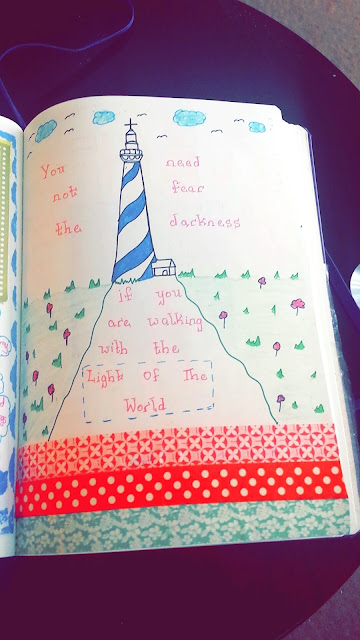 You need
not fear
the darkness
if you
are walking
with the
Light Of The
World